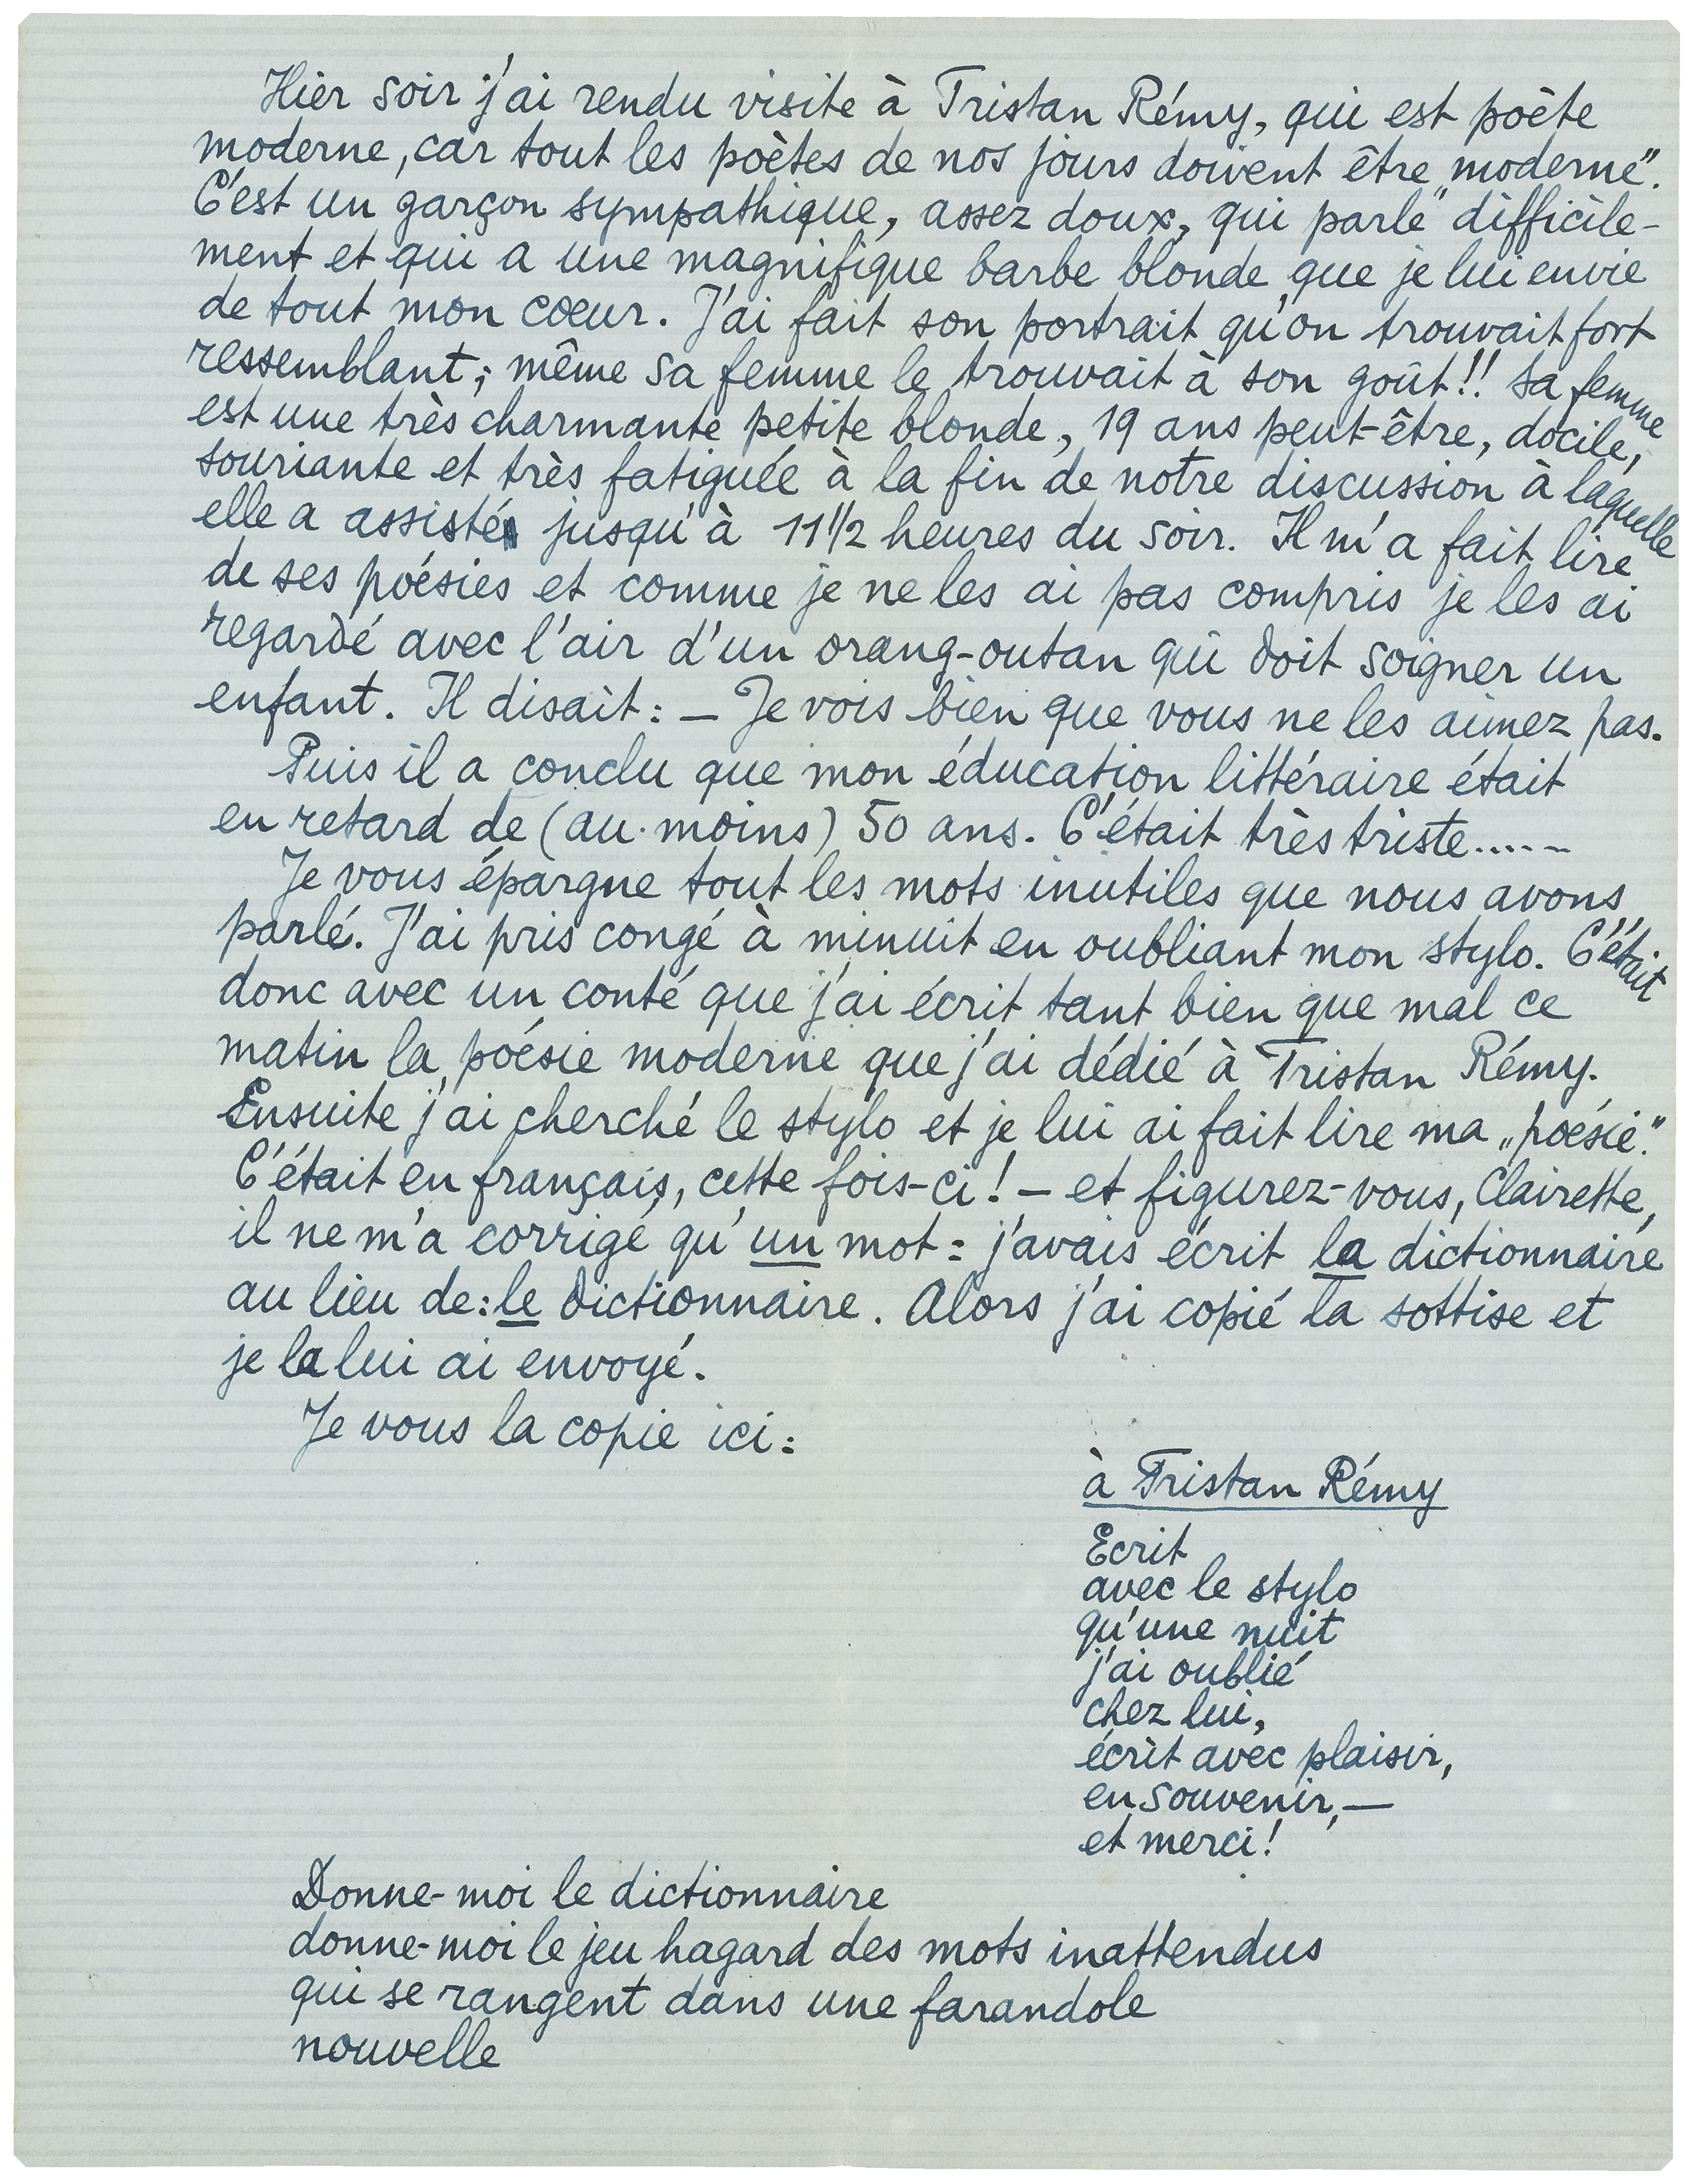 Hier soir j'ai rendu visite à Tristan Rémy, qui est poète
moderne, car tout les poètes de nos jours doivent être „moderne".
C'est un garçon sympathique, assez doux, qui parle difficile-
ment et qui a une magnifique barbe blonde que je lui envie
de tout mon cœur. J'ai fait son portrait qu'on trouvait fort
ressemblant; même sa femme le trouvait à son goût!! Sa femme
est une très charmante petite blonde, 19 ans peut-être, docile,
souriante et très fatiguée à la fin de notre discussion à laquelle
elle a assisté jusqu'à 11 1/2 heures du soir. Il m'a fait lire
de ses poésies et comme je ne les ai pas compris je les ai
regardé avec l'air d'un orang-outan qui doit soigner un
enfant. Il disait: — Je vois bien que vous ne les aimez pas.
Puis il a conclu que mon éducation littéraire était
en retard de (au moins) 50 ans. C'était très triste......
Je vous épargne tout les mots inutiles que nous avons
parlé. J'ai pris congé à minuit en oubliant mon stylo. C'était
donc avec un conté que j'ai écrit tant bien que mal ce
matin la poésie moderne que j'ai dédié à Tristan Rémy.
Ensuite j'ai cherché le stylo et je lui ai fait lire ma „poésie."
C'était en français, cette fois-ci! — et figurez-vous, Clairette,
il ne m'a corrigé qu'un mot: j'avais écrit la dictionnaire
au lieu de: le dictionnaire. Alors j'ai copié la sottise et
je la lui ai envoyé.
Je vous la copie ici:
à Tristan Rémy
Ecrit
avec le stylo
qu'une nuit
j'ai oublié
chez lui,
écrit avec plaisir,
en souvenir, —
et merci!
Donne-moi le dictionnaire
donne-moi le jeu hagard des mots inattendus
qui se rangent dans une farandole
nouvelle